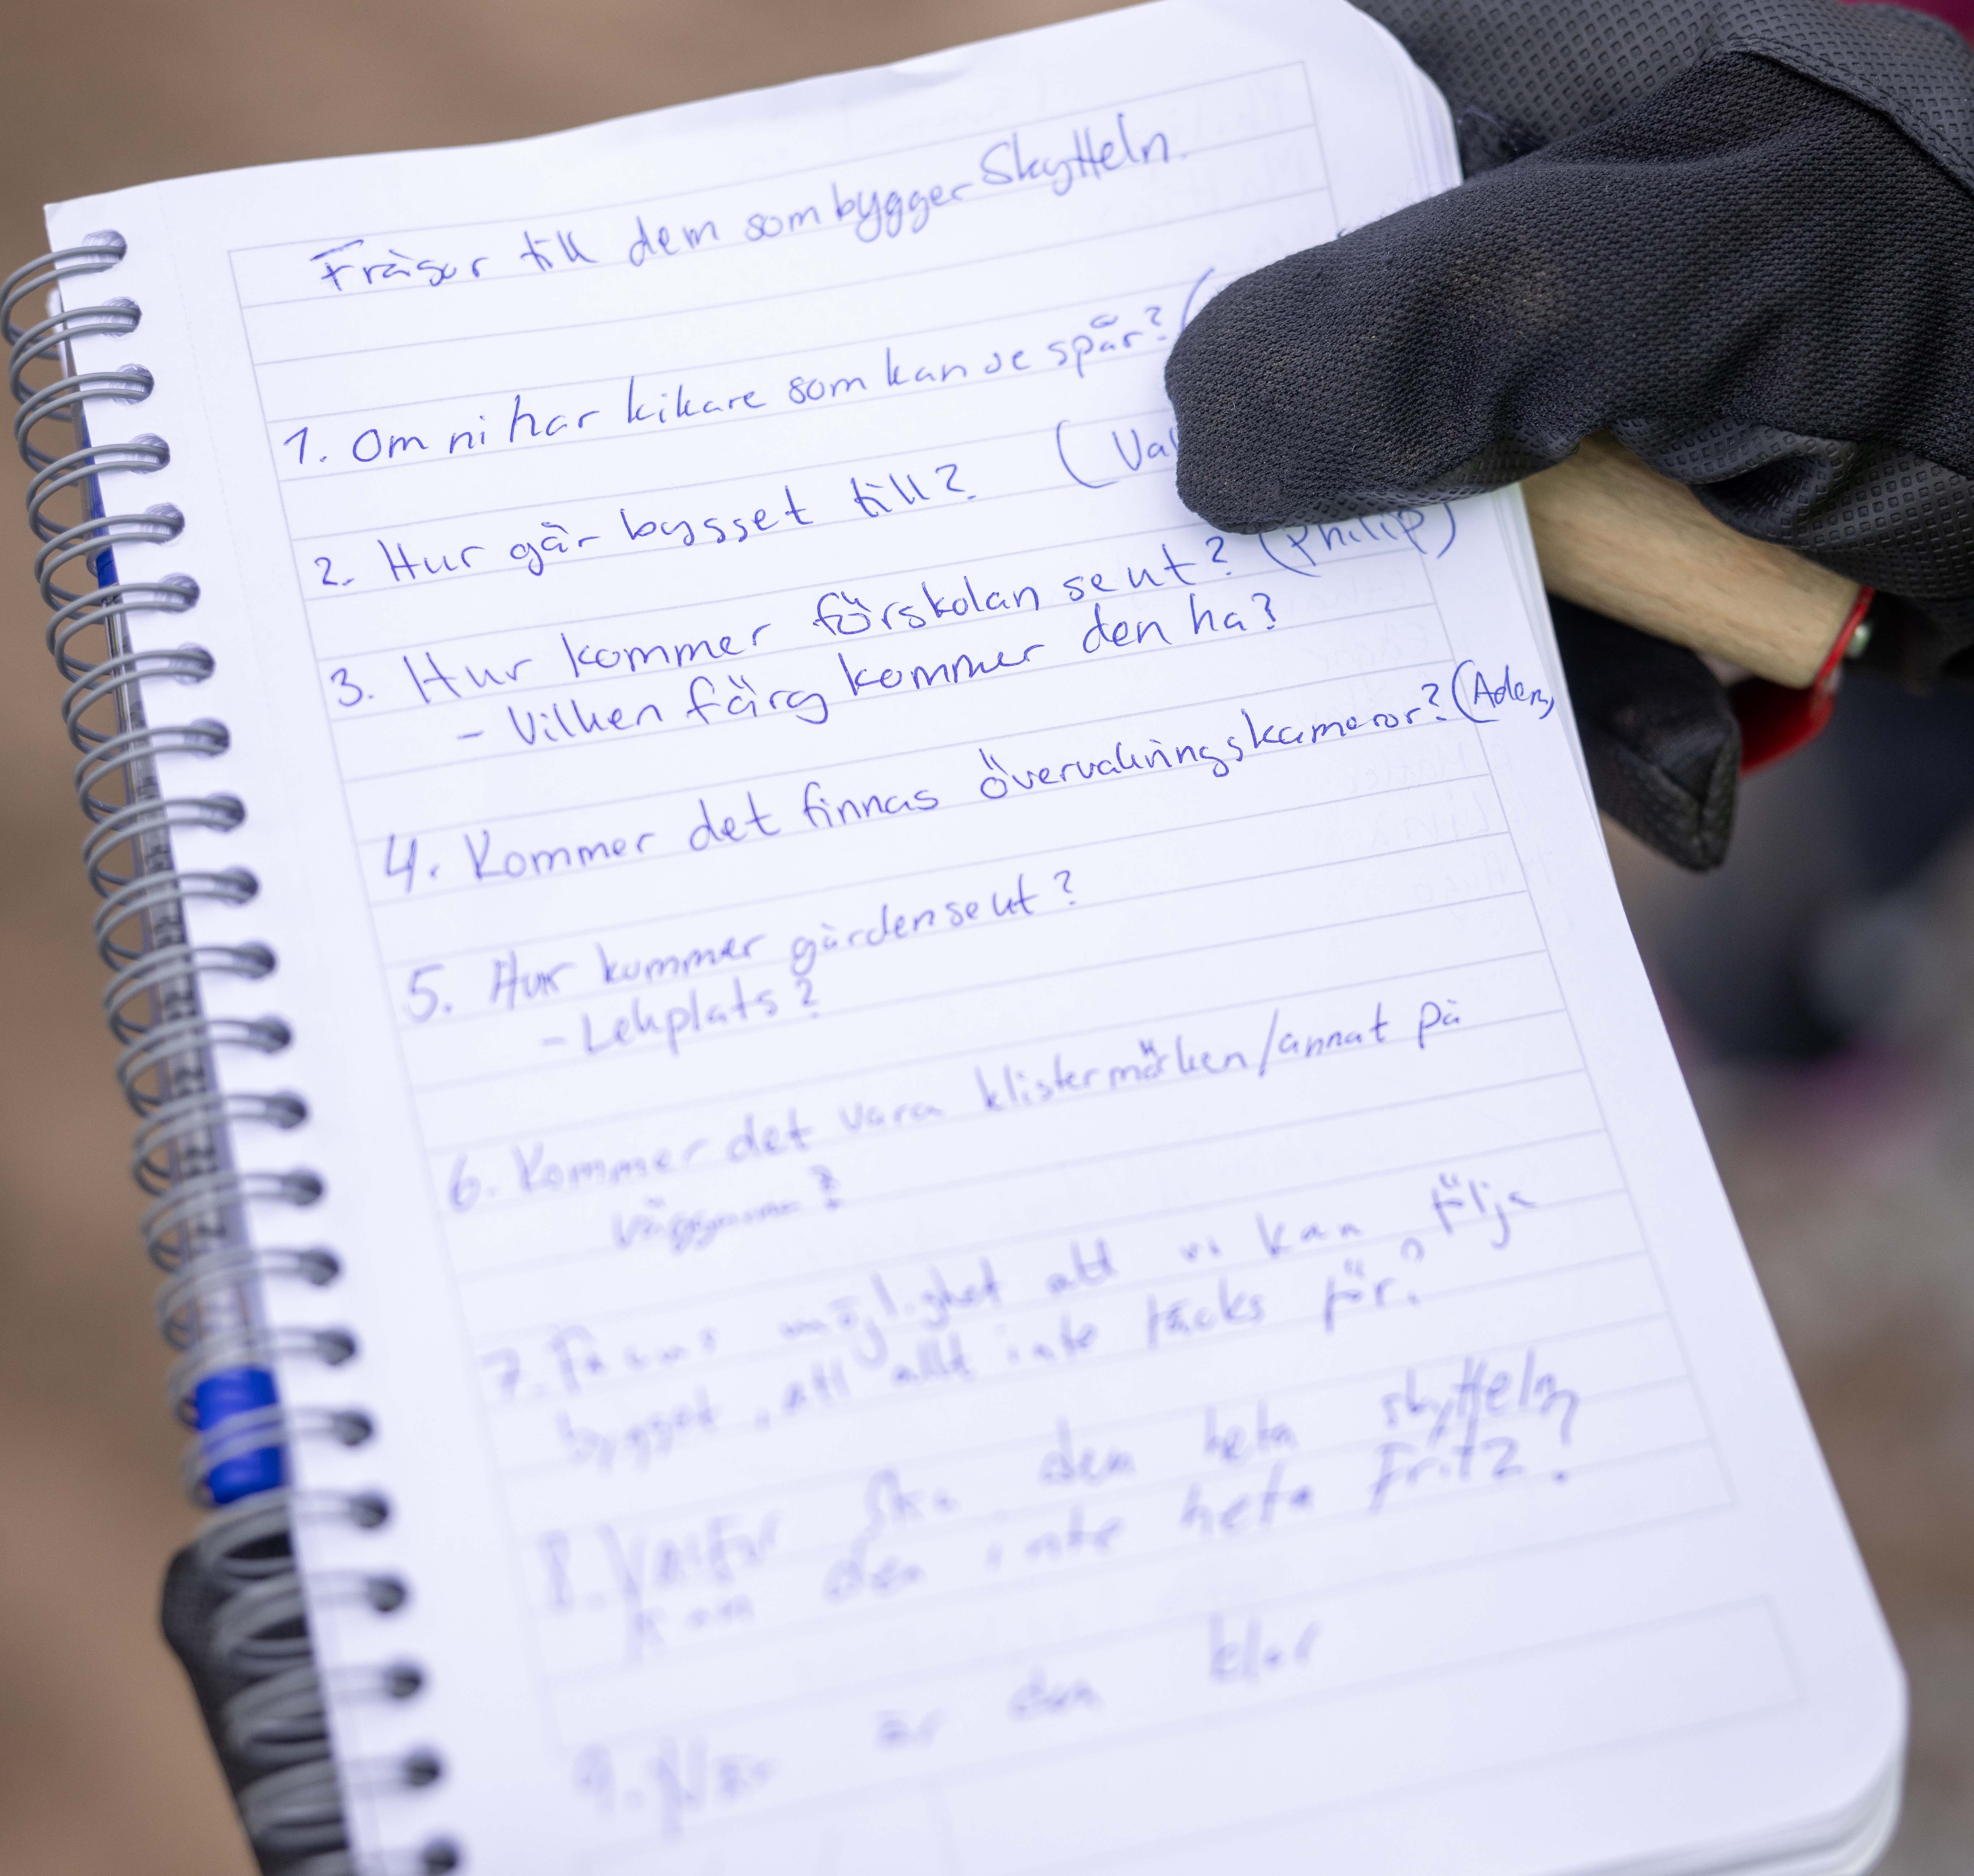 Frågor till dem som bygger Skytteln.
1. Om ni har kikare som kan se spår? (
2. Hur går bygget till? (Val
3. Hur kommer förskolan se ut? (Philip)
- Vilken färg kommer den ha?
4. Kommer det finnas övervakningskameror? (Adem,
5. Hur kommer gården se ut?
- Lekplats?
6. Kommer det vara klistermärken/annat på
väggarna?
7. Finns möjlighet att vi kan följa
bygget, att allt inte täcks för?
8. Varför ska den heta skytteln?
Kan den inte heta Fritz?
9. När är den klar